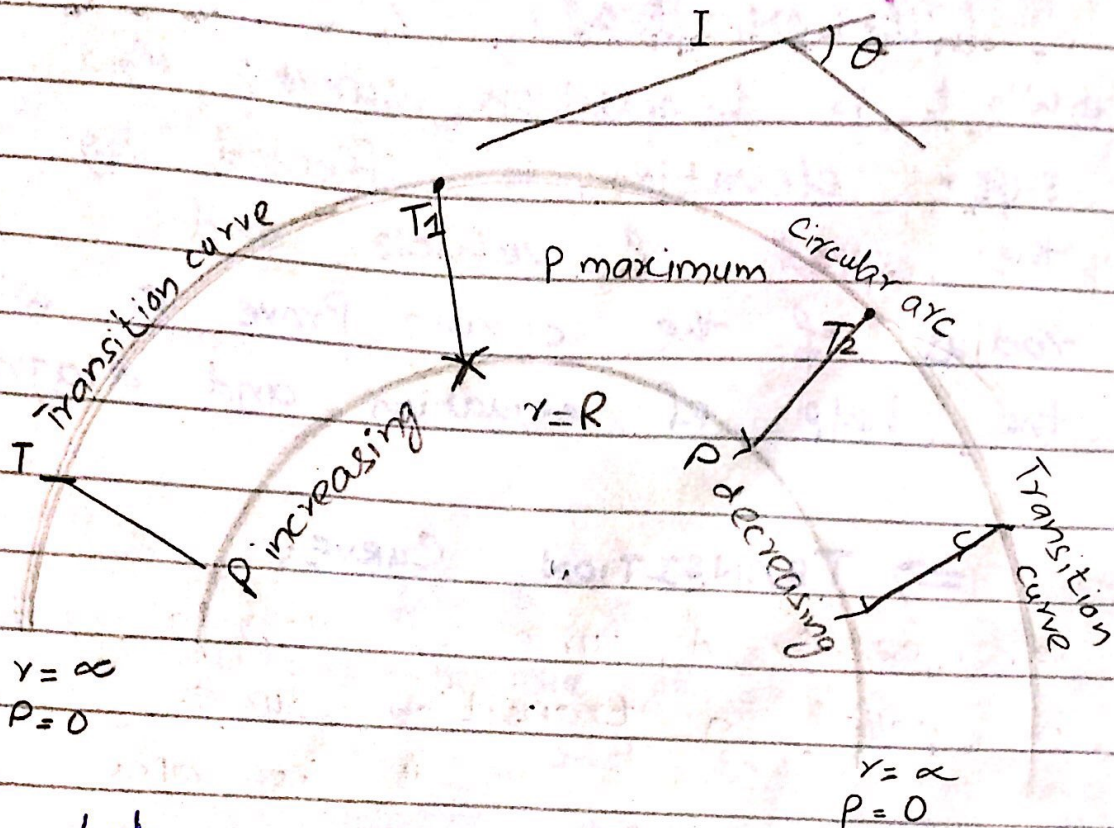 I
θ
Transition curve
T1
P maximum
Circular arc
T2
T
P increasing
r=R
P decreasing
C
Transition curve
r = ∞
P = 0
r = ∝
P = 0